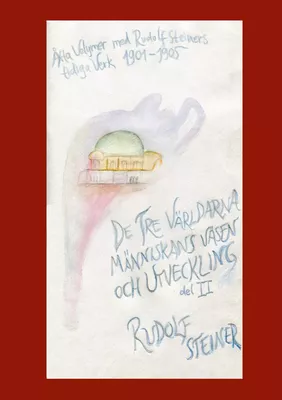 Åtta Volymer med Rudolf Steiners
tidiga Verk 1901-1905
DE TRE VÄRLDARNA
MÄNNISKANS VÄSEN
OCH UTVECKLING
del II
RUDOLF
STEINER